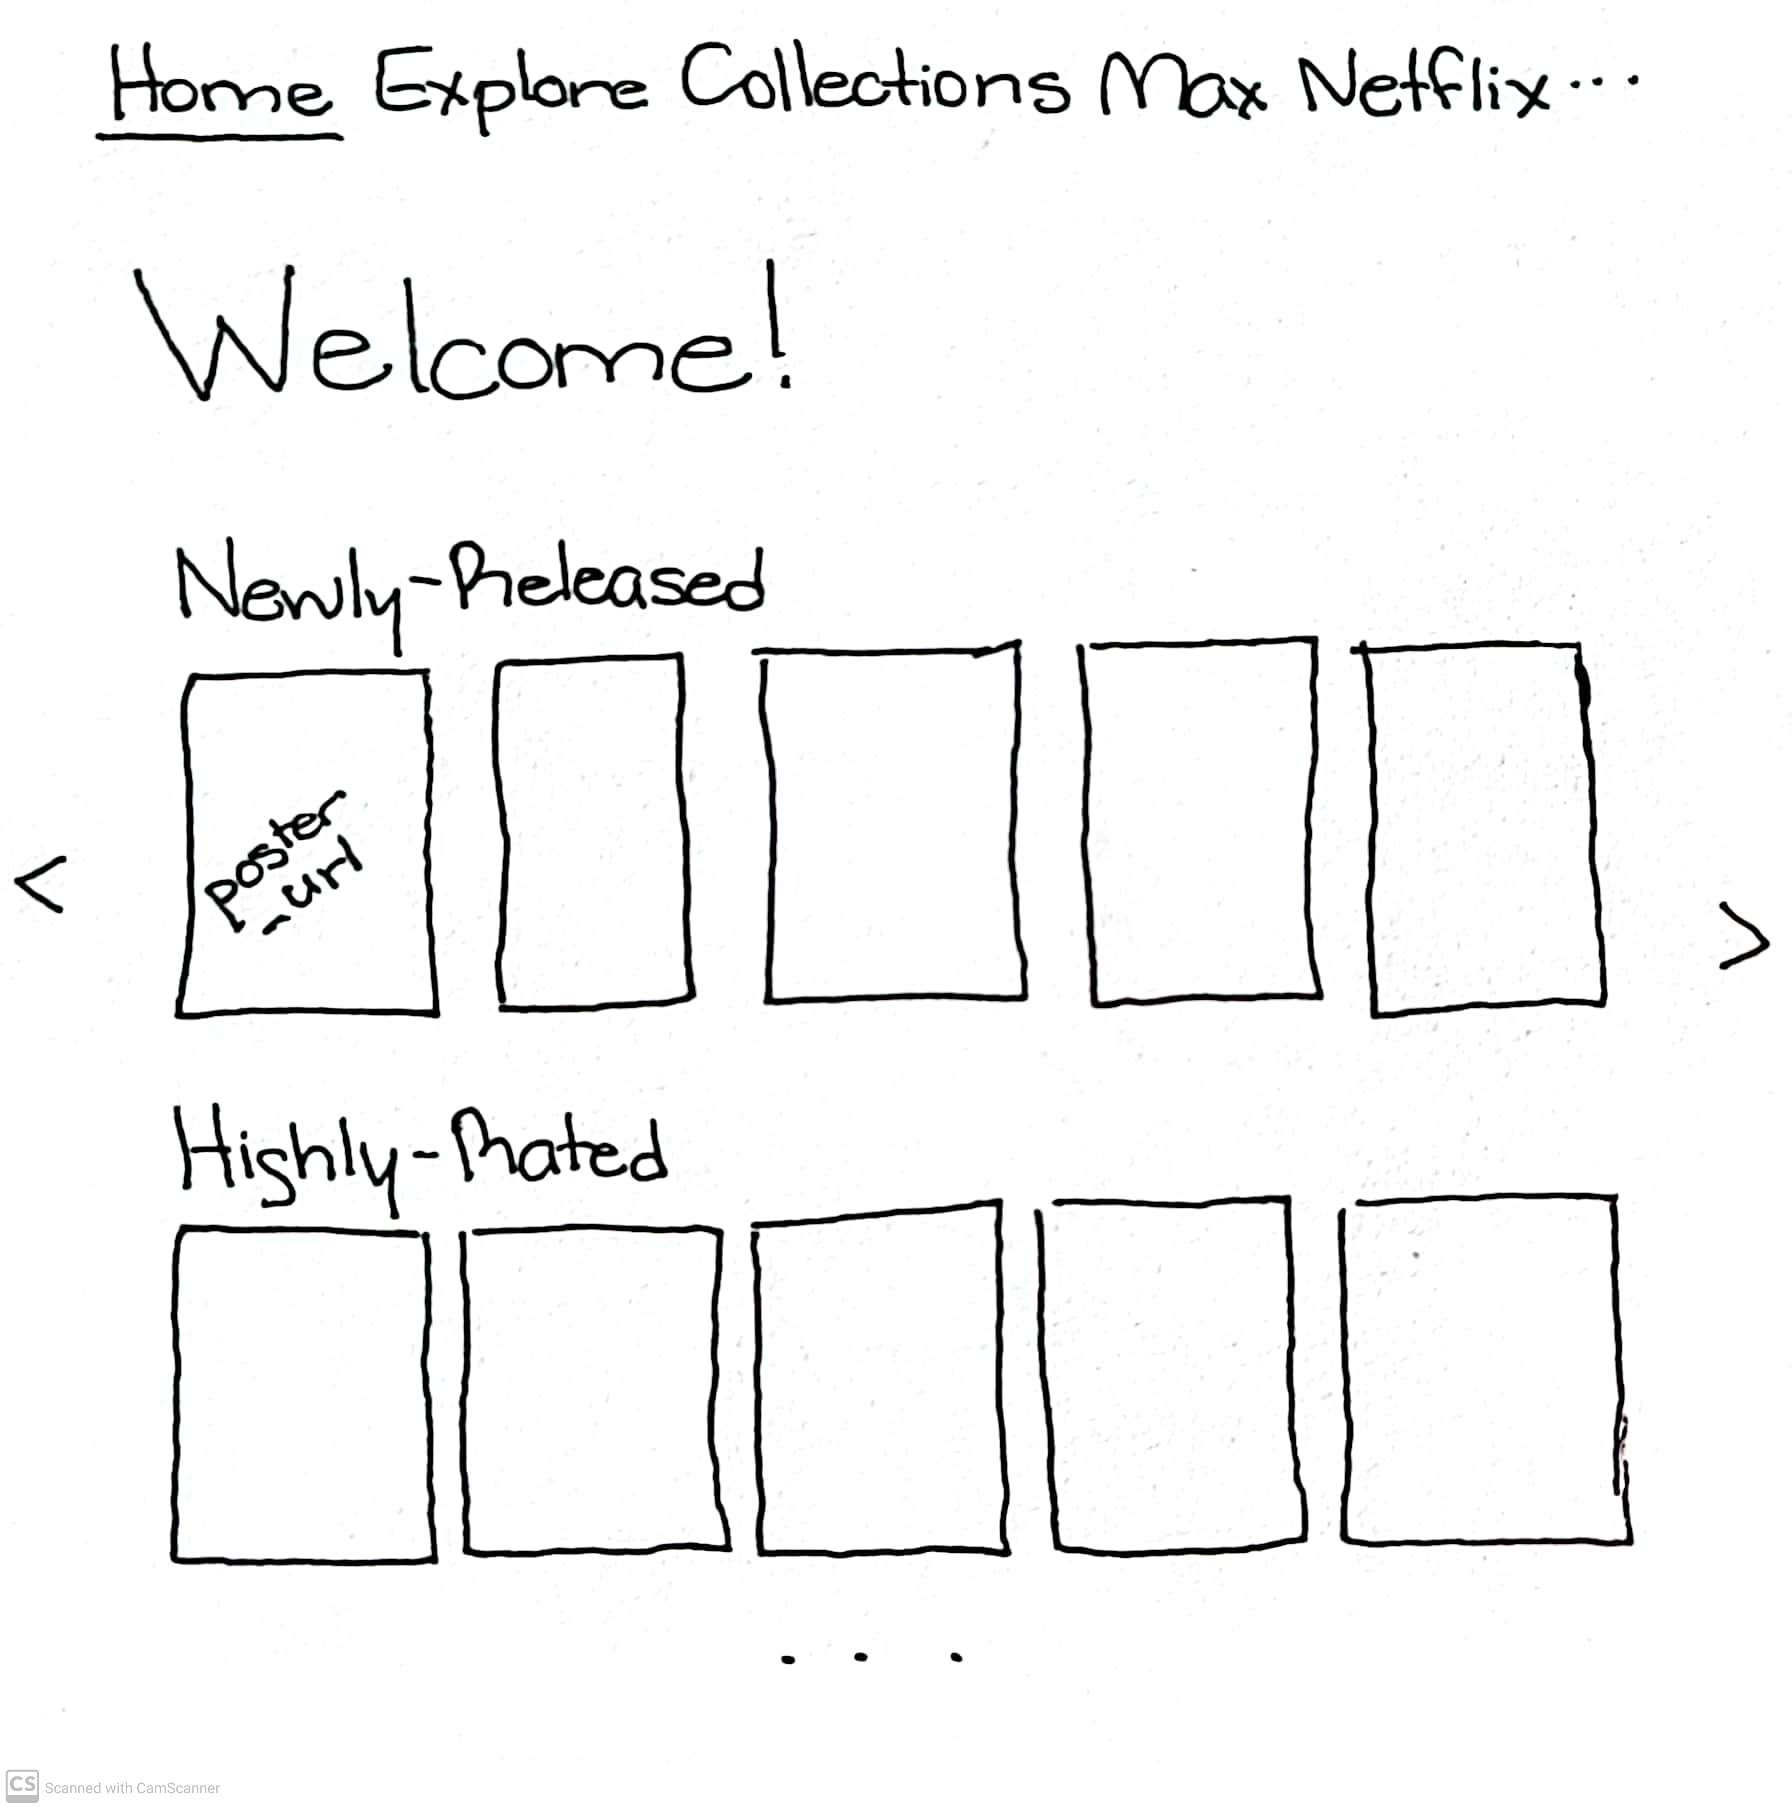 Home Explore Collections Max Netflix...
Welcome!
Newly-Released
poster
_url
<
>
Highly-Rated
...
CS Scanned with CamScanner